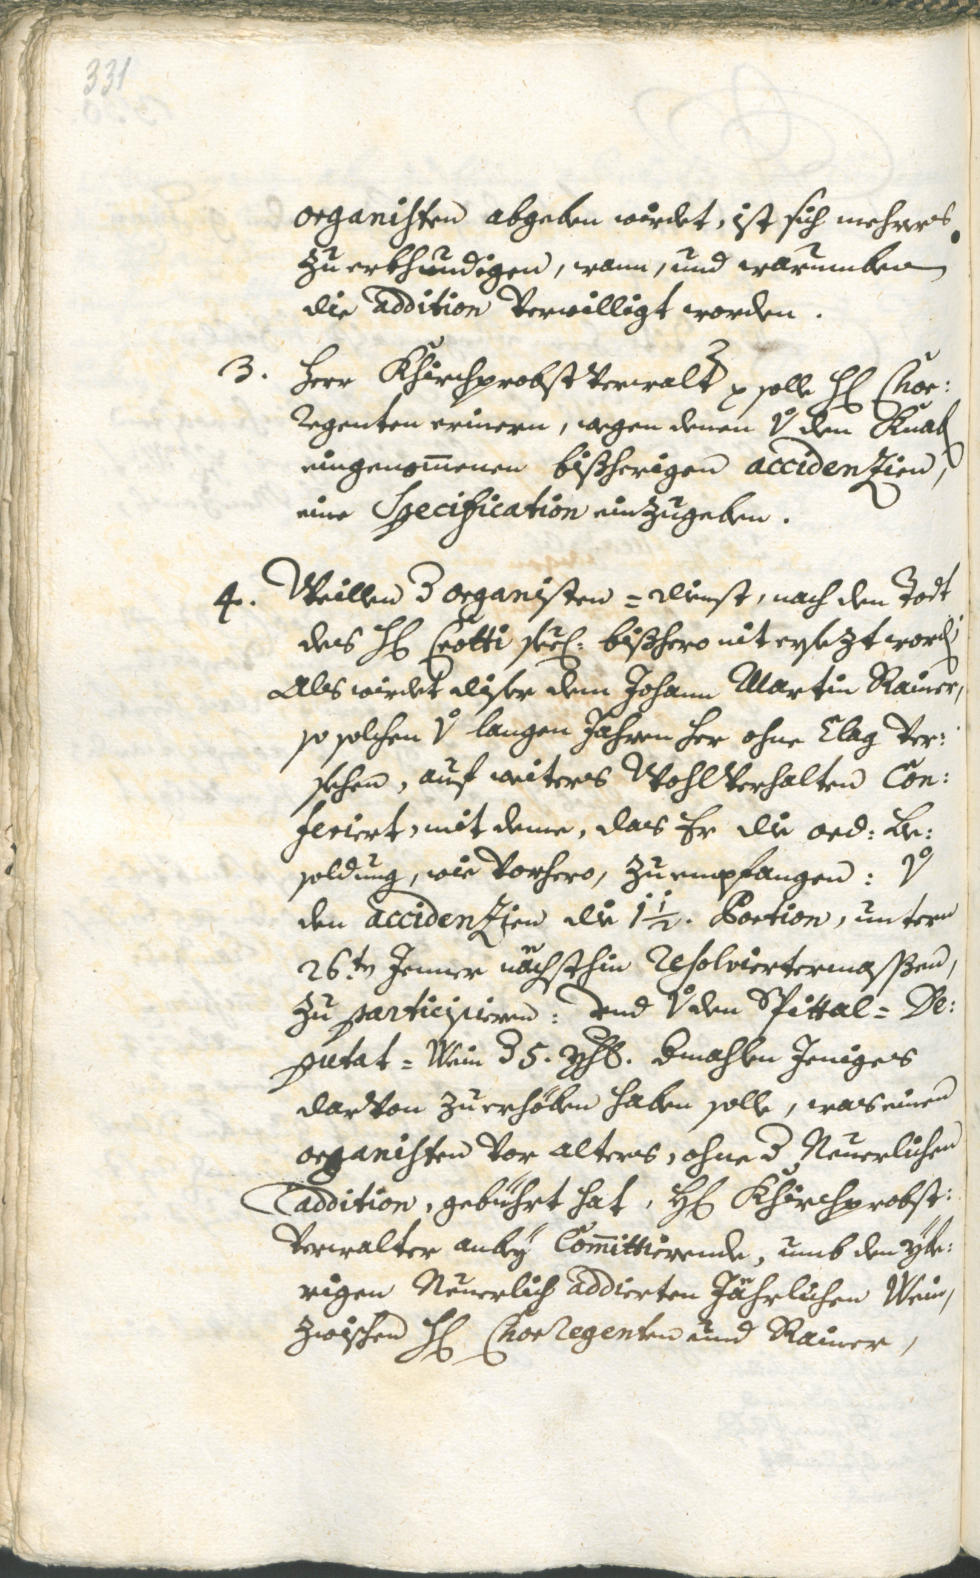 331
organisten abgeben würdet, ist sich mehrers
zu erkhundigen, wann, und warumben
die addition verwilligt worden.
3. Herr Khirchprobst Verwalter solle H: Chor:
Regenten erinern, wegen denen v den Knab
eingenommenen bisherigen accidenzien,
eine Specification einzugeben.
4. Weillen d organisten = dienst, nach den Todt
des H: Crotti seel: bishero nit ersezt word
Als wirdet diser dem Johann Martin Rainer,
so solchen v langen Jahren her ohne Clag ver:
sehen, auf weiters Wohlverhalten Con:
feriert, mit deme, das Er die ord: Be:
soldung, wie vorhero, zu empfangen: v
den accidenzien die 1 1/2. Portion, untern
26.ten Jenner nächsthin resolviertermassen,
zu participieren: und v den Spittal = De:
putat = Wein d 5. Yhr. Jeniges
darvon zu erhöben haben solle, was einen
organisten vor alters, ohne d Neuerlichen
addition, gebührt hat, H: Khirchprobst:
Verwalter anbey Committierende, umb den ybe:
rigen Neuerlich addierten Jährlichen Wein,
zwischen H: Chor Regenten und Rainer,